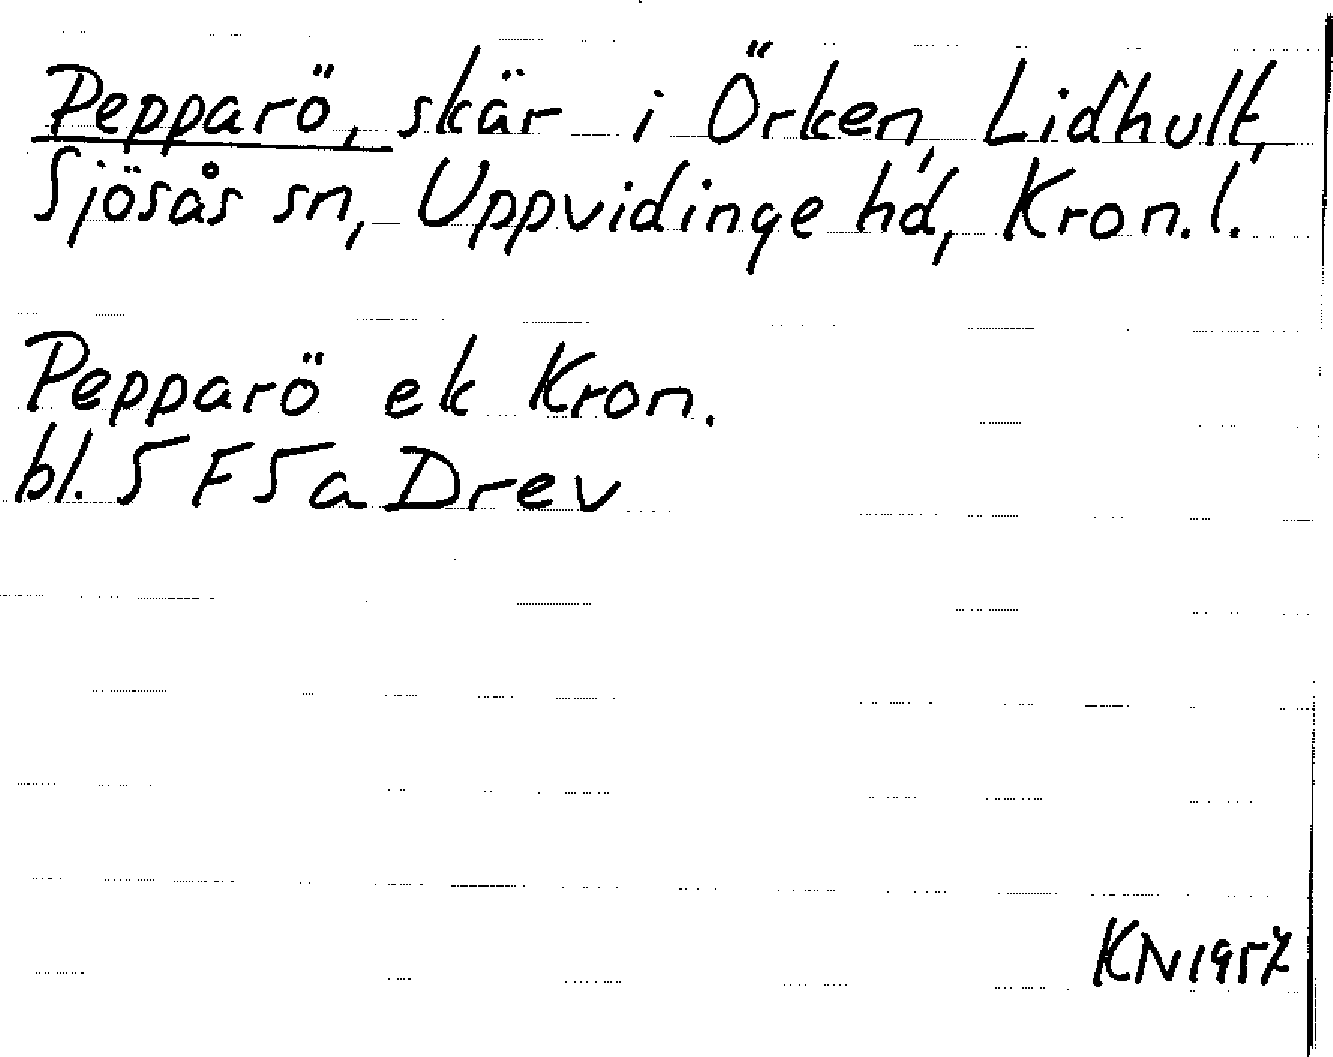 Pepparö, skär i Örken, Lidhult,
Sjösås sn, Uppvidinge hd, Kron.l.
Pepparö ek Kron.
bl. 5 F 5 a Drev
KN 1957